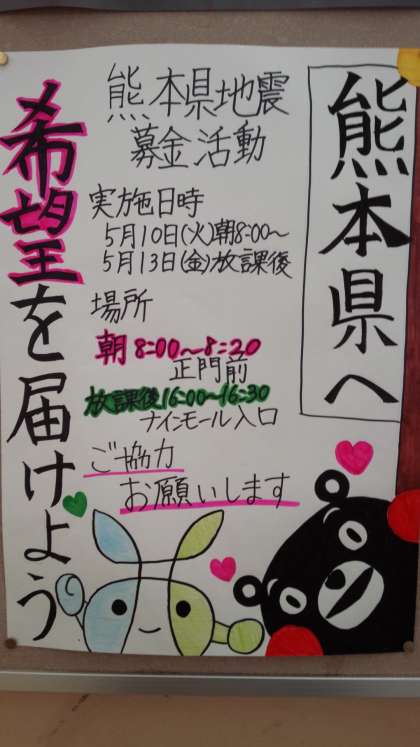 熊本県へ
希望を届けよう
熊本県地震
募金活動
実施日時
5月10日(火)朝8:00〜
5月13日(金)放課後
場所
朝 8:00〜8:20
正門前
放課後16:00〜16:30
ナインモール入口
ご協力
お願いします